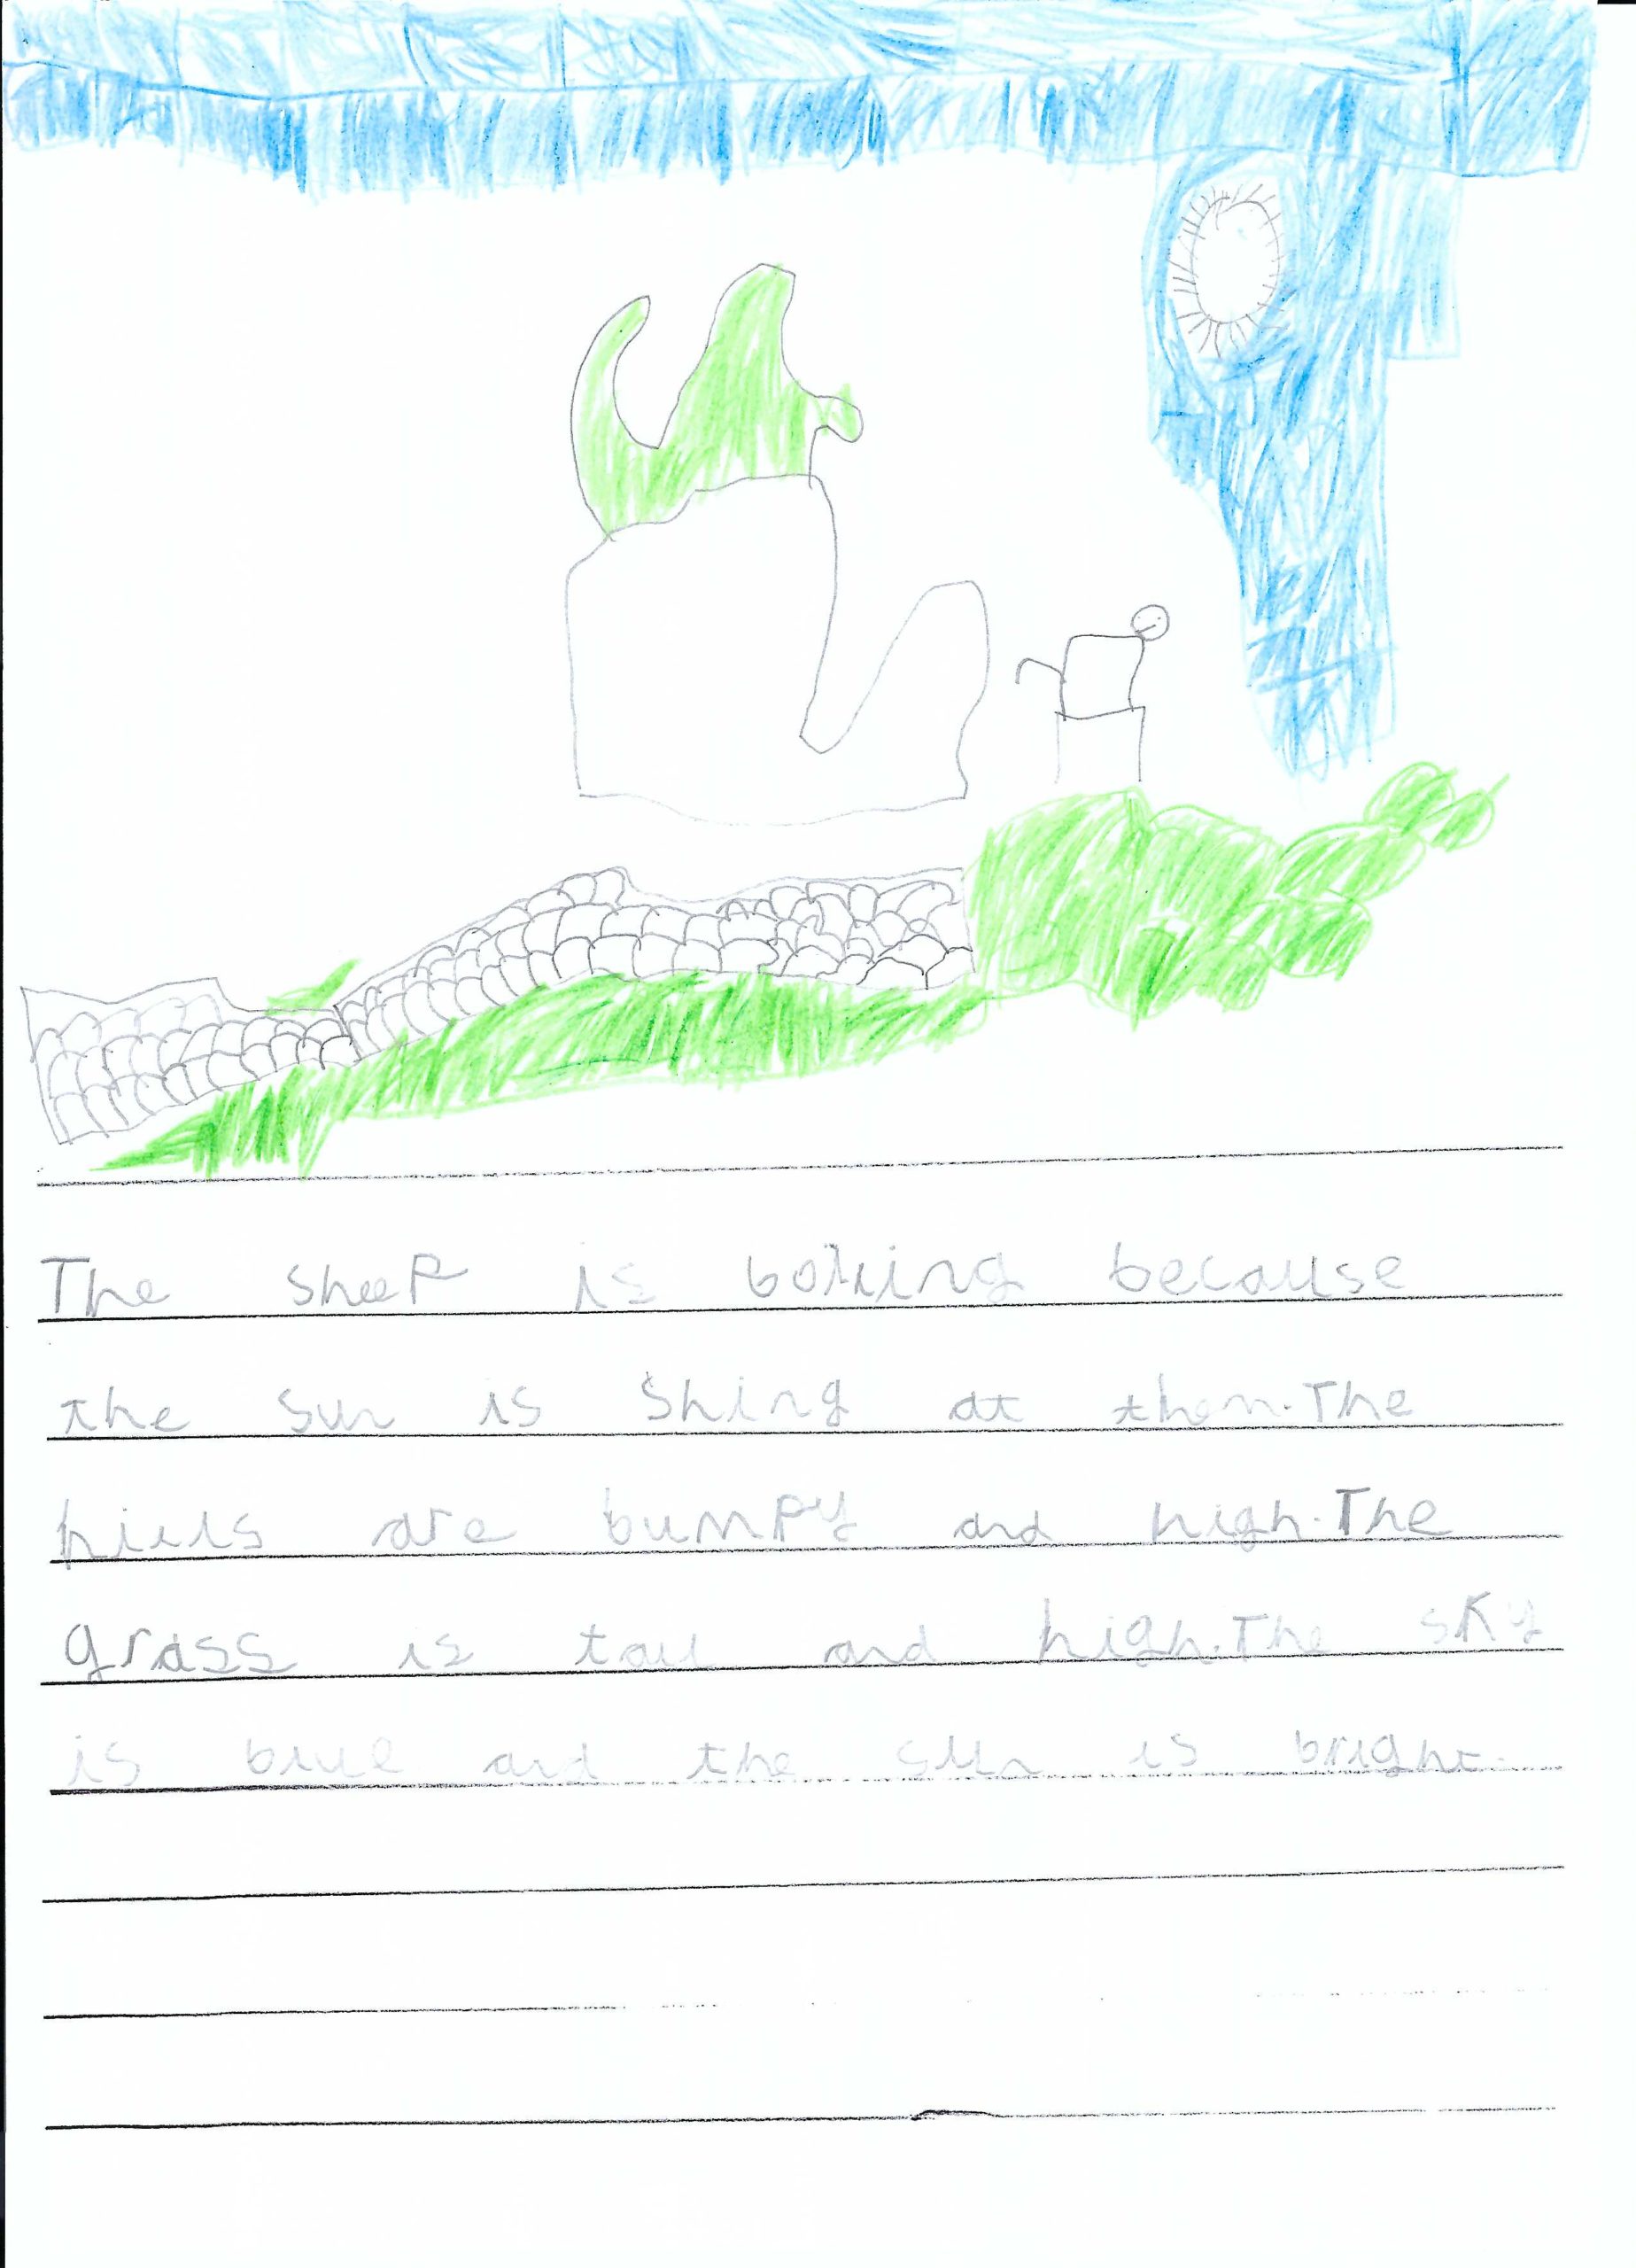 The sheep is boiling because
the sun is shing at them. The
hills are bumpy and high. The
grass is tall and high. The sky
is blue and the sun is bright.